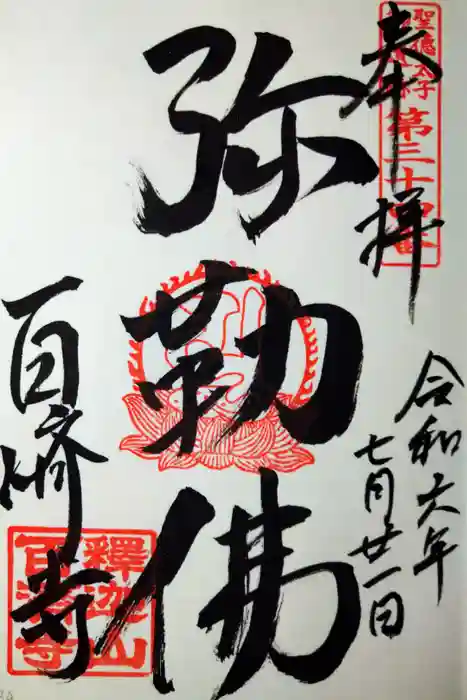 奉拝
聖徳太子
第三十四番
令和六年
七月廿一日
弥勒佛
百済寺
釋迦山
百濟寺